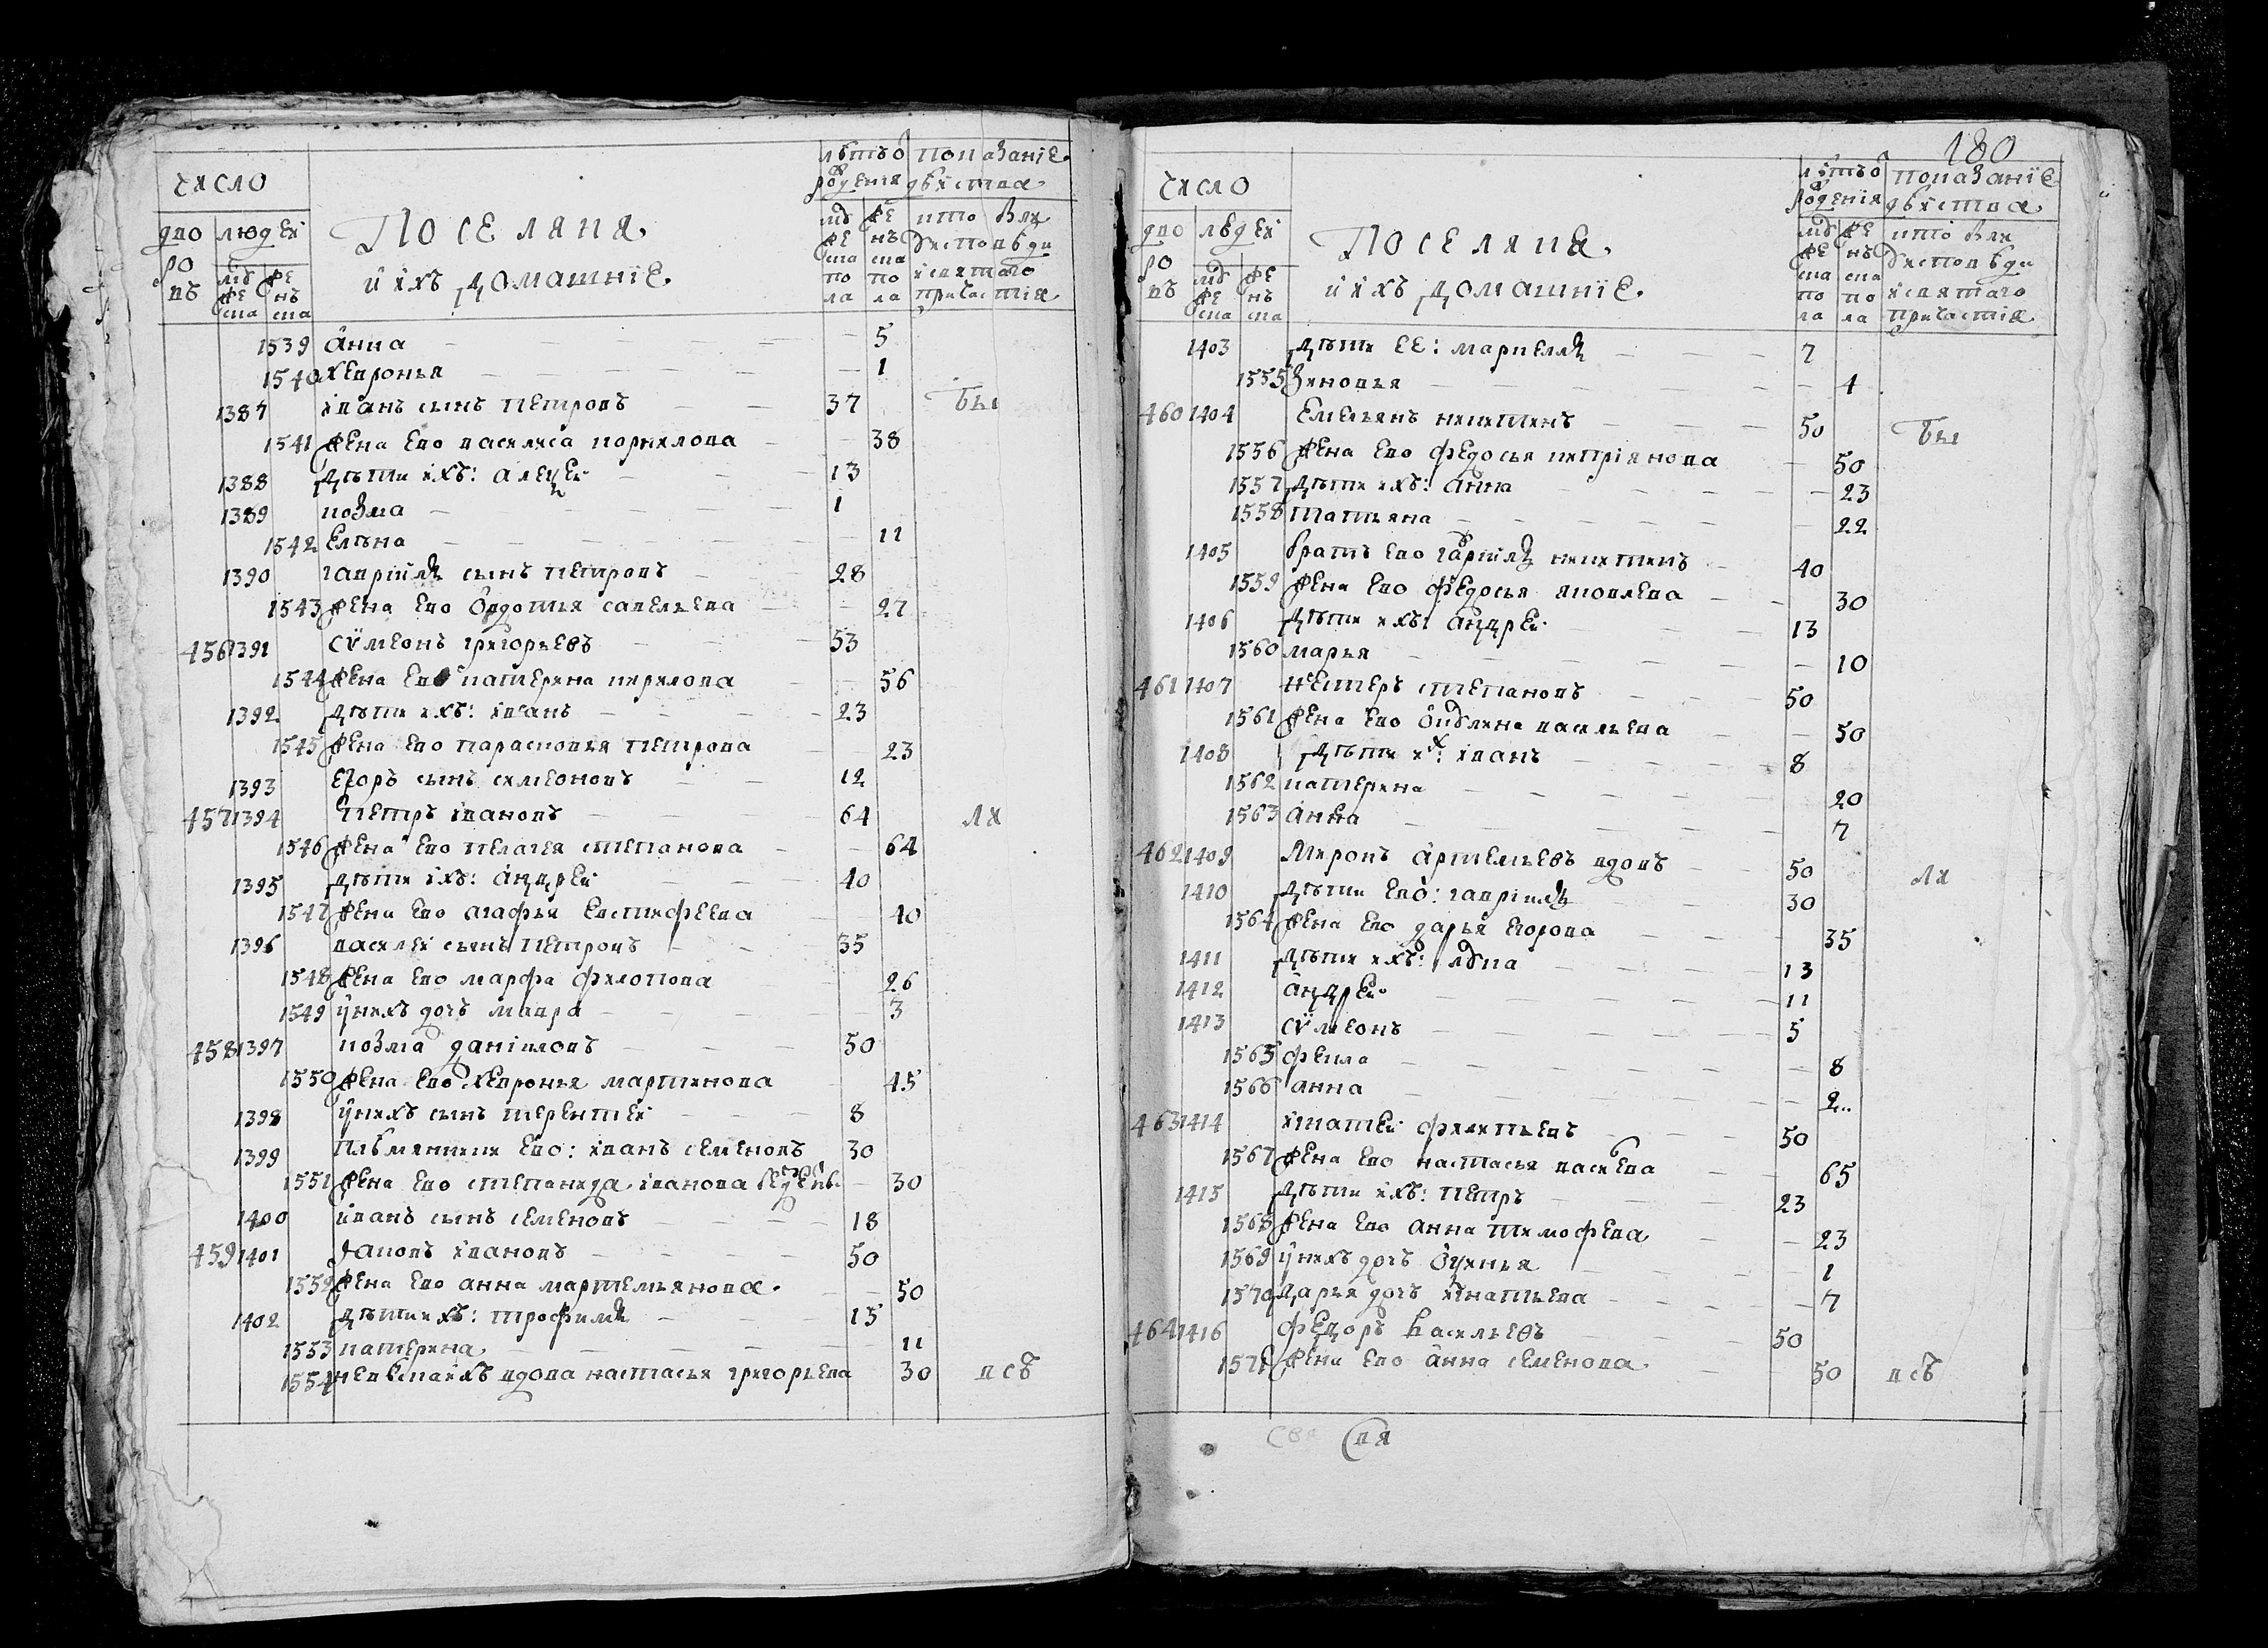 число
дворовъ людей
мужеска женска
Поселяня
и ихъ домашнїе
лѣтъ о рождения
мужеска пола женска пола
показанїе дѣйства
кто былъ у исповѣди и святаго причастїя
1539 анна — 5
1540 хевронья — 1
1387 іванъ сынъ петровъ — 37 бы
1541 жена ево василиса корнилова — 38
1388 дѣти ихъ: алеѯей — 13
1389 козма — 1
1542 елѣна — 11
1390 гавріилъ сынъ петровъ — 28
1543 жена ево овдотья савельева — 27
456 1391 сѵмеонъ григорьевъ — 53
1544 жена ево катерина кирилова — 56
1392 дѣти ихъ: іванъ — 23
1545 жена ево парасковья петрова — 23
1393 егоръ сынъ симеоновъ — 12
457 1394 петръ івановъ — 64 ли
1546 жена ево пелагея степанова — 64
1395 дѣти ихъ: андрей — 40
1547 жена ево агафья евстифеева — 40
1396 василеи сынъ петровъ — 35
1548 жена ево марфа филопова — 26
1549 у нихъ дочь мавра — 3
458 1397 козма даніиловъ — 50
1550 жена ево хевронья мартинова — 45
1398 у нихъ сынъ терентеи — 8
1399 племянникъ ево: іванъ семеновъ — 30
1551 жена ево степанида іванова — 30
1400 иванъ сынъ семеновъ — 18
459 1401 Яковъ івановъ — 50
1552 жена ево анна мартемьянова — 50
1402 дѣти ихъ: трофимъ — 15
1553 катерина — 11
1554 невѣстка ихъ вдова настасья григорьева 30 всѣ
180
число
дворовъ людей
мужеска женска
Поселяня
и ихъ домашнїе
лѣтъ о рождения
мужеска пола женска пола
показанїе дѣйства
кто былъ у исповѣди и святаго причастїя
1403 дѣти ее: маркеллъ — 7
1555 Зиновья — 4
460 1404 Емельянъ никитинъ — 50 бы
1556 жена ево федосья кипріянова — 50
1557 дѣти ихъ: анна — 23
1558 татьяна — 22
1405 братъ ево гавріилъ никитинъ — 40
1559 жена ево федосья яковлева — 30
1406 дѣти ихъ: андрей — 13
1560 марья — 10
461 1407 нестеръ степановъ — 50
1561 жена ево окулина васильева — 50
1408 дѣти их: іванъ — 8
1562 катерина — 20
1563 анна — 7
462 1409 Миронъ артемьевъ вдовъ — 50 ли
1410 дѣти ево: гавріилъ — 30
1564 жена ево дарья егорова — 35
1411 дѣти ихъ: лука — 13
1412 андрей — 11
1413 сѵмеонъ — 5
1565 фекла — 8
1566 анна — 2
463 1414 игнатей филипьевъ — 50
1567 жена ево настасья васильева — 65
1415 дѣти ихъ: петръ — 23
1568 жена ево анна тимофева — 23
1569 у нихъ дочь оуѳинья — 1
1570 дарья дочь игнатьева — 7
464 1416 федоръ васильевъ — 50
1571 жена ево анна семенова — 50 всѣ
свя